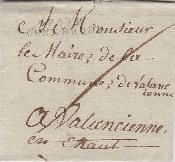 A Monsieur
le Maire, de la
Commune, de valan
cienne
a Valancienne
en Hainaut